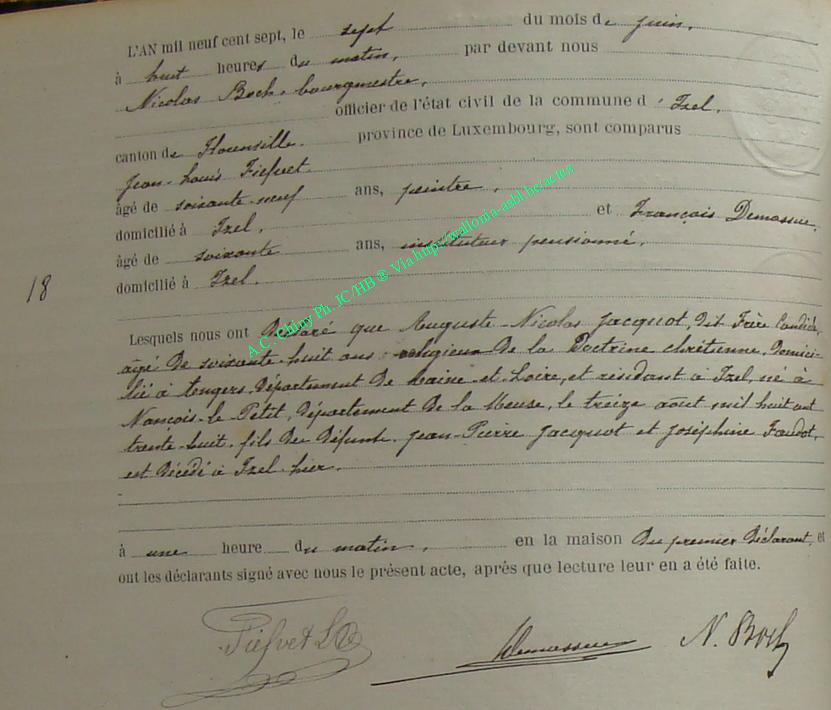 L'AN mil neuf cent sept, le sept du mois de juin,
à huit heures du matin, par devant nous
Nicolas Boch, bourgmestre,
officier de l'état civil de la commune d'Izel,
canton de Florenville province de Luxembourg, sont comparus
Jean-Louis Piefvet
âgé de soixante-neuf ans, peintre,
domicilié à Izel, et François Demassue,
âgé de soixante ans, instituteur pensionné,
domicilié à Izel.
18
Lesquels nous ont déclaré que Auguste-Nicolas Jacquot, dit Frère Candide,
âgé de soixante-huit ans, religieux de la Doctrine chrétienne, domici-
lié à Angers, département de Maine-et-Loire, et résidant à Izel, né à
Nançois-le-Petit, département de la Meuse, le treize août mil huit cent
trente-huit, fils de défunts Jean-Pierre Jacquot et Joséphine Faudot,
est décédé à Izel hier,
à une heure du matin, en la maison du premier déclarant, et
ont les déclarants signé avec nous le présent acte, après que lecture leur en a été faite.
Piefvet L Demassue N. Boch
A.C. Chiny Ph. IC/HB ® Via http://wallonia-asbl.be/actes